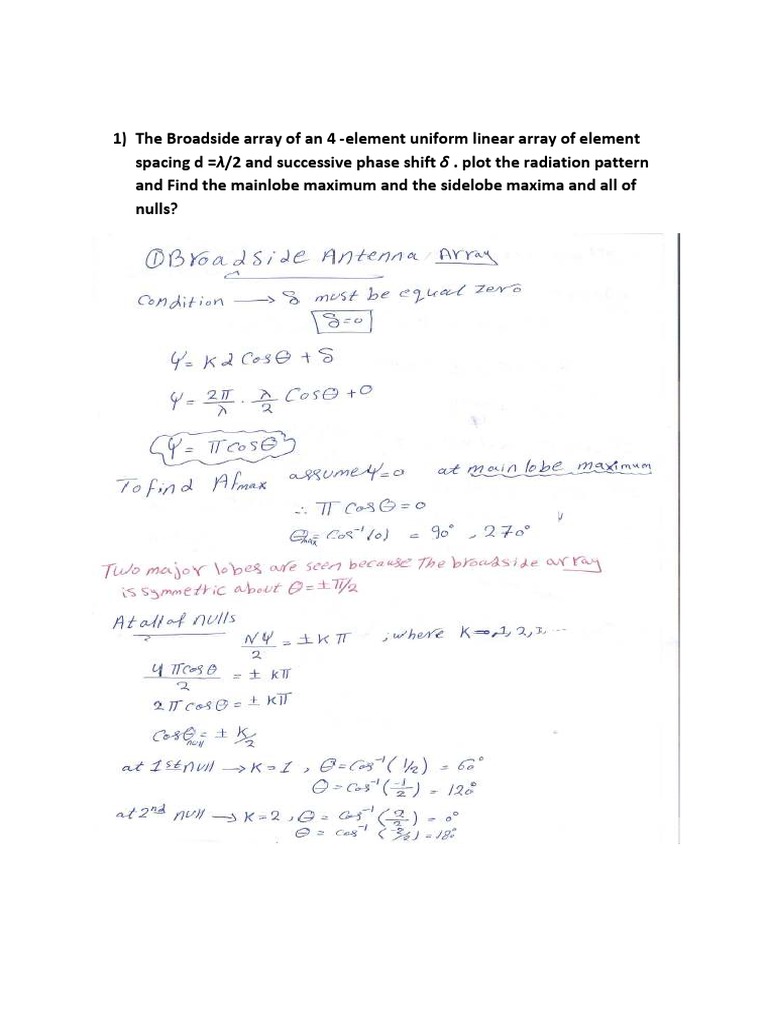 1) The Broadside array of an 4 -element uniform linear array of element
spacing d =λ/2 and successive phase shift δ . plot the radiation pattern
and Find the mainlobe maximum and the sidelobe maxima and all of
nulls?
① Broadside Antenna Array
Condition → δ must be equal zero
δ=0
Ψ= Kd Cosθ + δ
Ψ= 2π/λ · λ/2 Cosθ +0
Ψ= π cosθ
To find Afmax assume Ψ=0 at main lobe maximum
∴ π Cosθ = 0
θmax= Cos⁻¹(0) = 90°, 270°
Two major lobes are seen because The broadside array
is symmetric about θ = ±π/2
At all of nulls
NΨ/2 = ± K π , where K=0,1,2,3, ...
4πcosθ/2 = ± Kπ
2πcosθ = ± Kπ
Cosθnull = ± K/2
at 1st null → K=1 , θ=Cos⁻¹(1/2) = 60°
θ=Cos⁻¹(-1/2) = 120°
at 2nd null → K=2 , θ = Cos⁻¹(2/2) = 0°
θ = cos⁻¹(-2/2)=180°